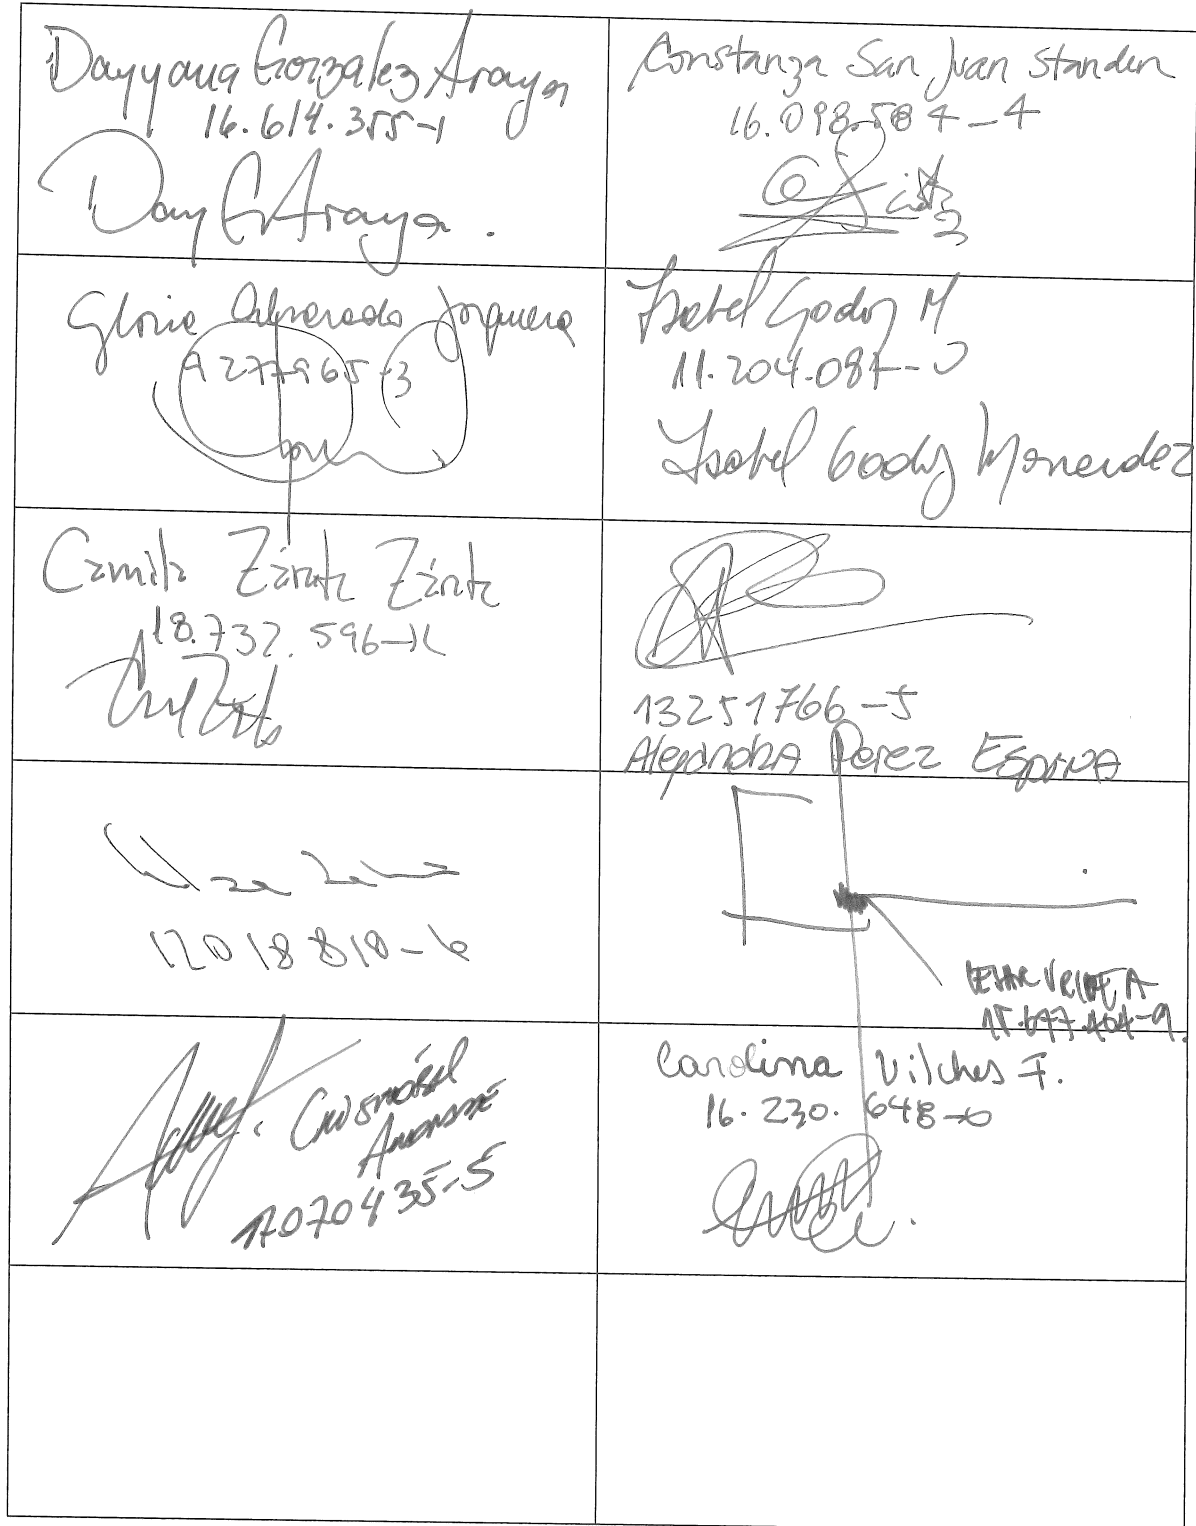 Dayyana González Araya
16.614.355-1
Day G Araya.
Constanza San Juan Standen
16.098.587-4
Gloria Alvarado Jorquera
9277965-3
Isabel Godoy M
11.204.087-0
Isabel Godoy Monardez
Camila Zárate Zárate
18.732.596-K
13251766-5
Alejandra Perez Espina
12018818-6
Cristóbal
Andrade
17070435-5
Carolina Vilches F.
16.230.648-0